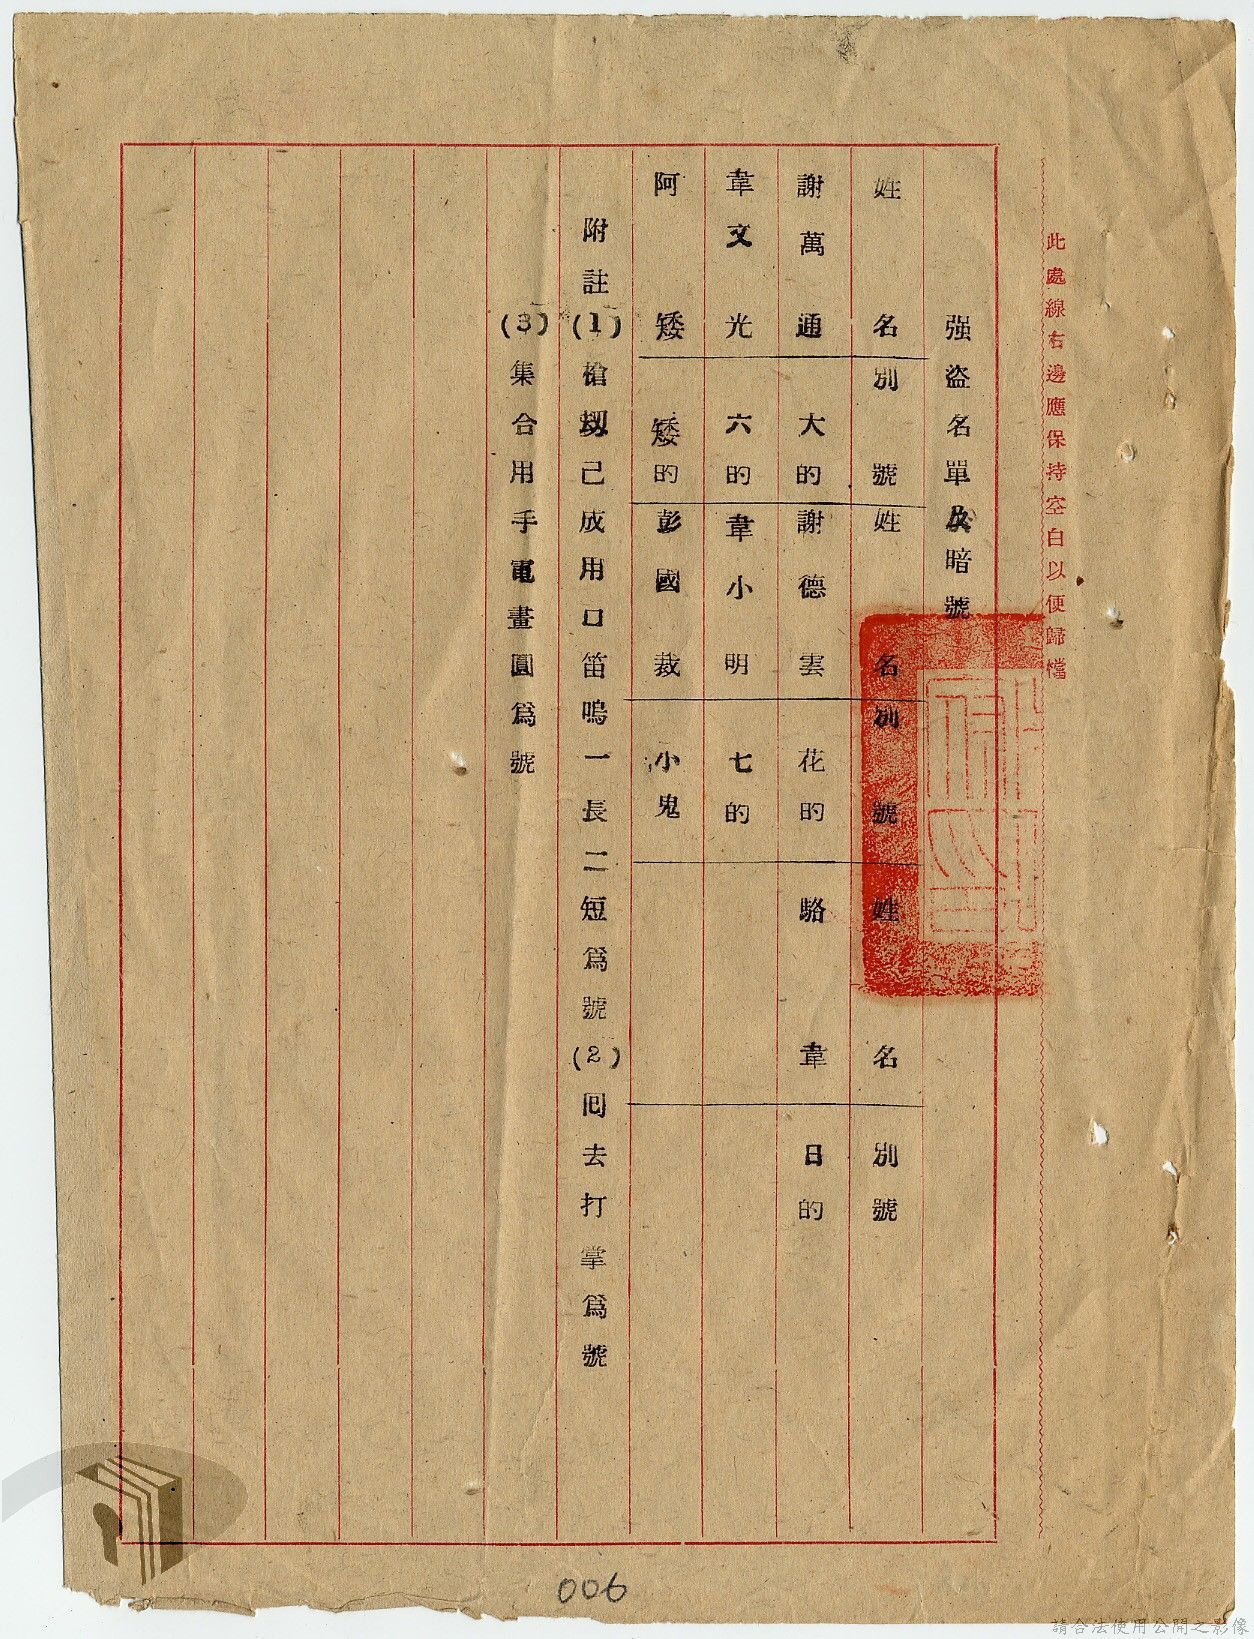 此處線右邊應保持空白以便歸檔
强盜名單及暗號
姓名 別號 姓名 別號 姓名 別號
謝萬通 大的 謝德雲 花的 駱韋 日的
韋文光 六的 韋小明 七的
阿矮 矮的 彭國裁 小鬼
附註(1)槍刼己成用口笛鳴一長二短爲號(2)囘去打掌爲號
(3)集合用手電畫圓爲號
006
請合法使用公開之影像